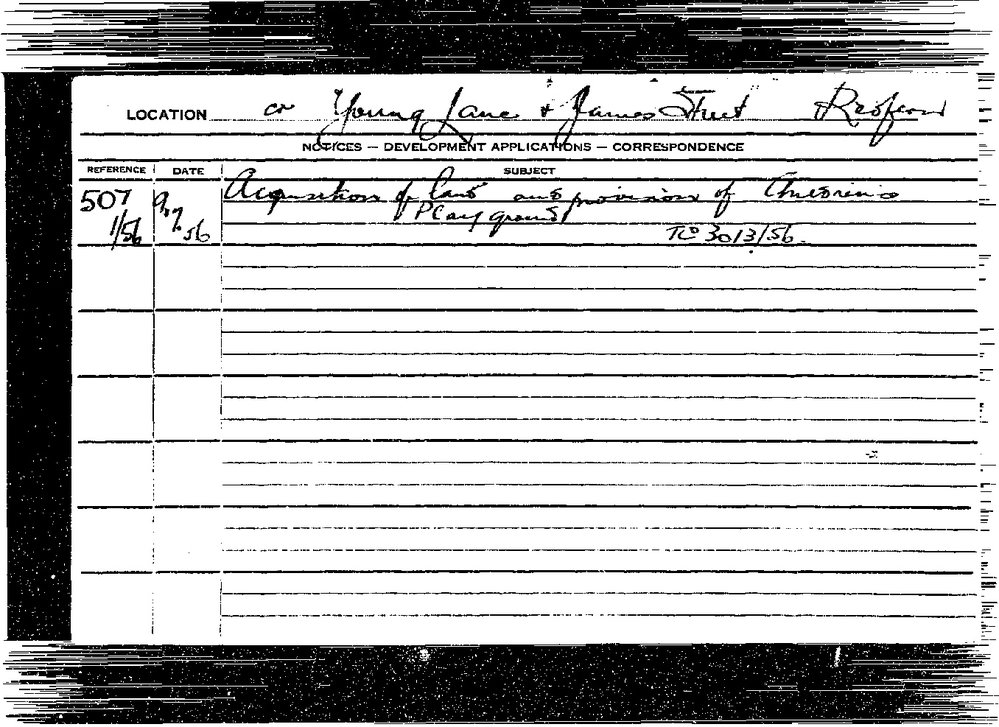 LOCATION cr Young Lane + James Street Redfern
NOTICES — DEVELOPMENT APPLICATIONS — CORRESPONDENCE
REFERENCE DATE SUBJECT
507 9/7 Acquisition of land and provision of Children's
1/56 56 Playground
TC 3013/56.